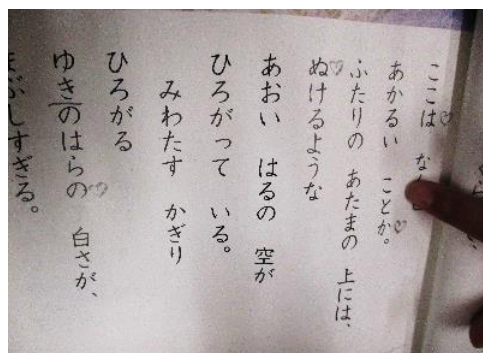 ここは なんと
あかるい ことか。
ふたりの あたまの 上には、
ぬけるような
あおい はるの 空が
ひろがって いる。
みわたす かぎり
ひろがる
ゆきのはらの 白さが、
まぶしすぎる。